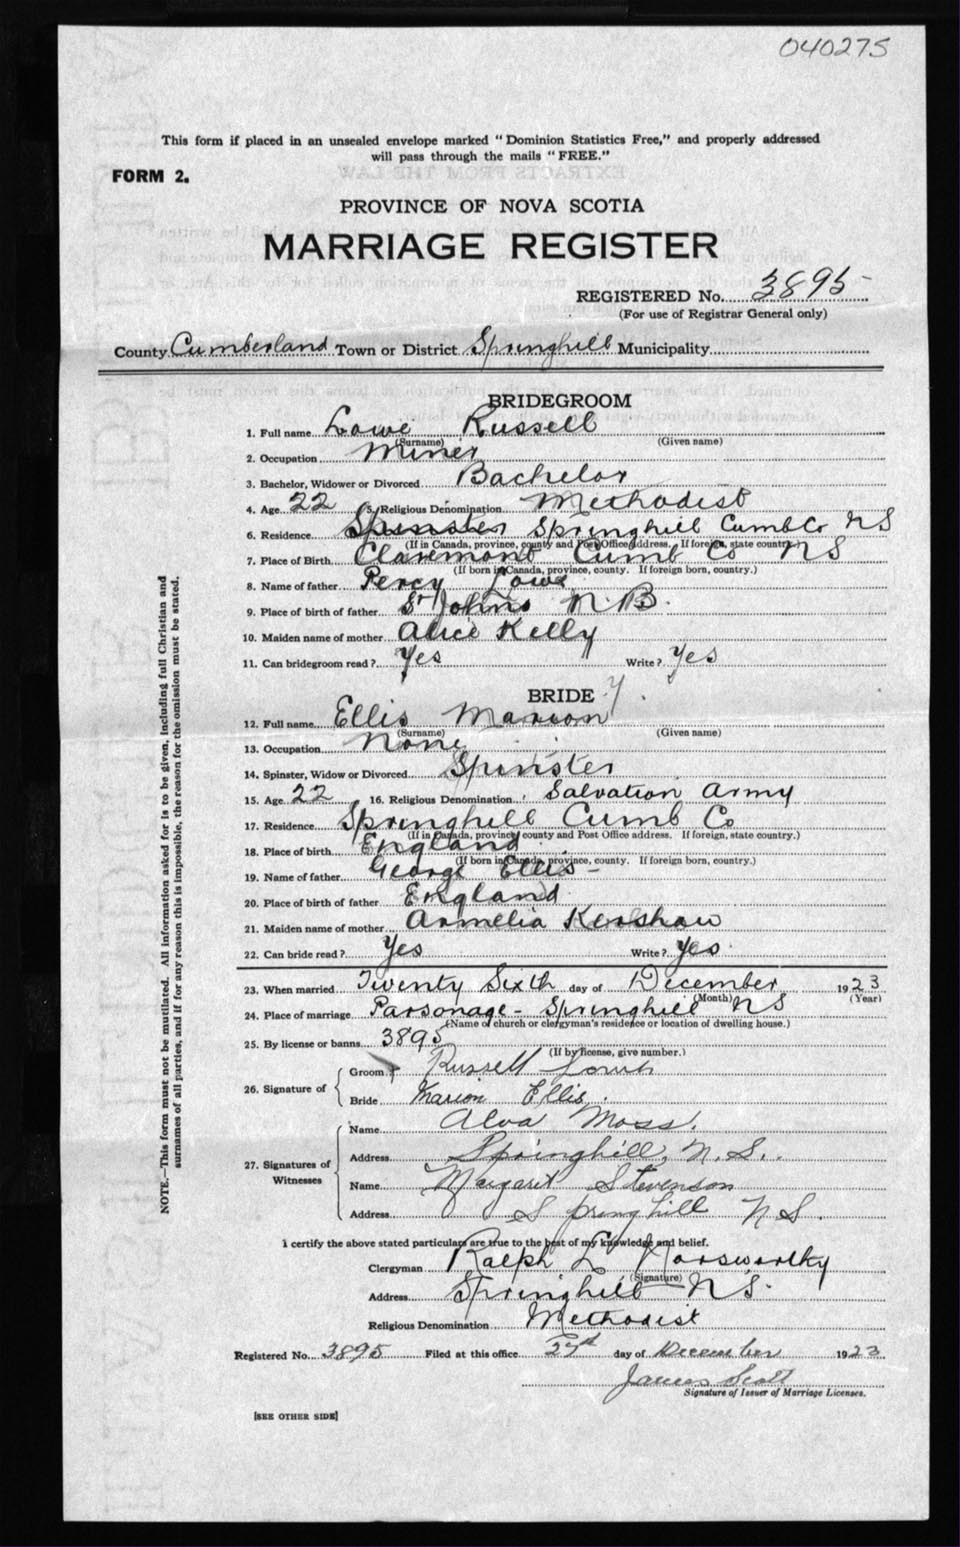 040275
This form if placed in an unsealed envelope marked "Dominion Statistics Free," and properly addressed
will pass through the mails "FREE."
FORM 2.
PROVINCE OF NOVA SCOTIA
MARRIAGE REGISTER
REGISTERED No. 3895
(For use of Registrar General only)
County Cumberland Town or District Springhill Municipality
BRIDEGROOM
1. Full name Lowe Russell
(Surname) (Given name)
2. Occupation Miner
3. Bachelor, Widower or Divorced Bachelor
4. Age 22 5. Religious Denomination Methodist
6. Residence Spinster Springhill Cumb Co NS
(If in Canada, province, county and Post Office address. If foreign, state country.)
7. Place of Birth Claremont Cumb Co NS
(If born in Canada, province, county. If foreign born, country.)
8. Name of father Percy Lowe
9. Place of birth of father St Johns N.B.
10. Maiden name of mother Alice Kelly
11. Can bridegroom read? Yes Write? Yes
BRIDE
12. Full name Ellis Marion
(Surname) (Given name)
13. Occupation None
14. Spinster, Widow or Divorced Spinster
15. Age 22 16. Religious Denomination Salvation Army
17. Residence Springhill Cumb Co
(If in Canada, province, county and Post Office address. If foreign, state country.)
18. Place of birth England
(If born in Canada, province, county. If foreign born, country.)
19. Name of father George Ellis
20. Place of birth of father England
21. Maiden name of mother Armelia Kershaw
22. Can bride read? Yes Write? Yes
23. When married Twenty Sixth day of December 1923
(Month) (Year)
24. Place of marriage Parsonage - Springhill NS
(Name of church or clergyman's residence or location of dwelling house.)
25. By license or banns 3895
(If by license, give number.)
26. Signature of
Groom Russell
Bride Marion Ellis
27. Signatures of Witnesses
Name Alva Moss.
Address Springhill, N.S.
Name Margaret Stevenson
Address Springhill NS.
I certify the above stated particulars are true to the best of my knowledge and belief.
Clergyman Ralph E Horsworthy
(Signature)
Address Springhill NS.
Religious Denomination Methodist
Registered No. 3895 Filed at this office day of December 1923
James Scott
Signature of Issuer of Marriage Licenses.
[SEE OTHER SIDE]
NOTE.—This form must not be mutilated. All information asked for is to be given, including full Christian and
surnames of all parties, and if for any reason this is impossible, the reason for the omission must be stated.